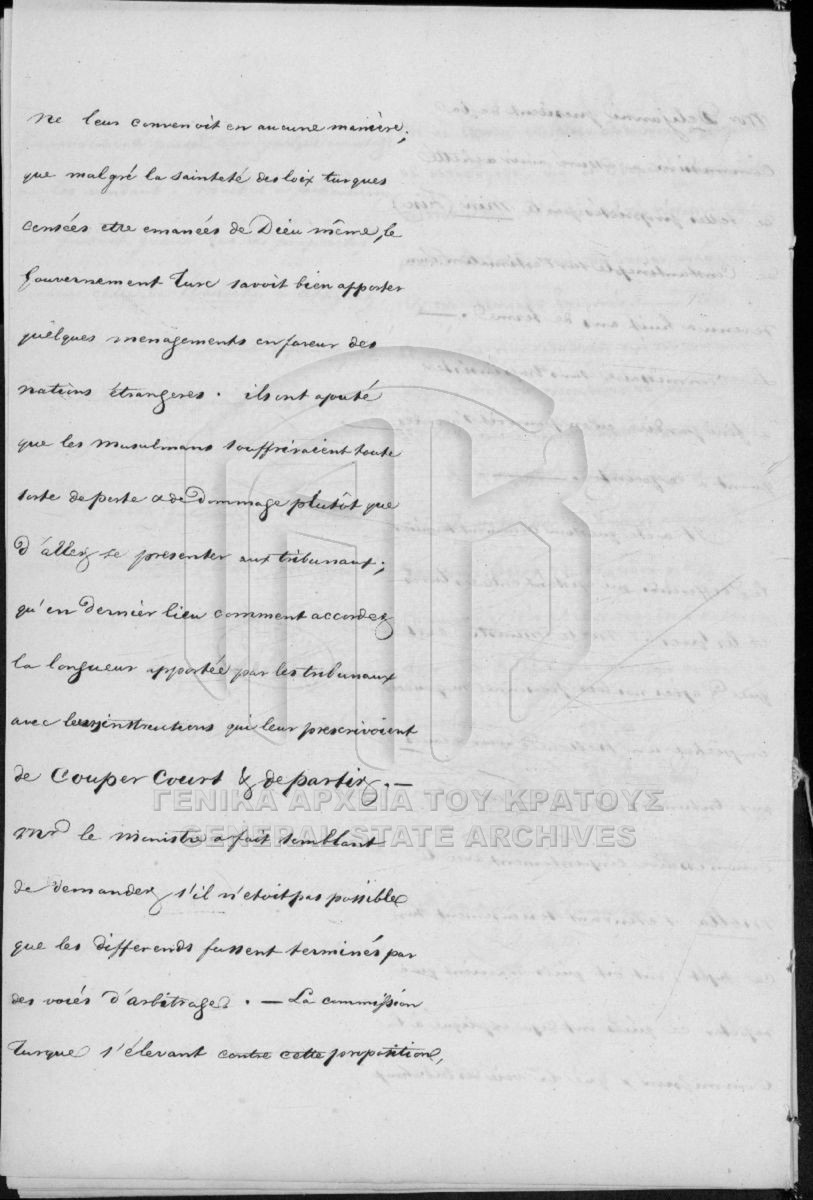 ne leur convenoit en aucune manière;
que malgré la sainteté des loix turques
censées etre emanées de Dieu même, le
Gouvernement turc savoit bien apporter
quelques menagements en faveur des
nations étrangeres. ils ont ajouté
que les Musulmans souffriraient toute
sorte de perte & de dommage plutôt que
d'aller se presenter aux tribunaux;
qu'en dernier lieu comment accorder
la longueur apportée par les tribunaux
avec les instructions qui leur prescrivoient
de couper court & de partir. —
Mr le Ministre a fait semblant
de demander s'il n'étoit pas possible
que les differends fussent terminés par
des voies d'arbitrage. — La commission
turque s'élevant contre cette proposition,
ΓΕΝΙΚΑ ΑΡΧΕΙΑ ΤΟΥ ΚΡΑΤΟΥΣ
GENERAL STATE ARCHIVES